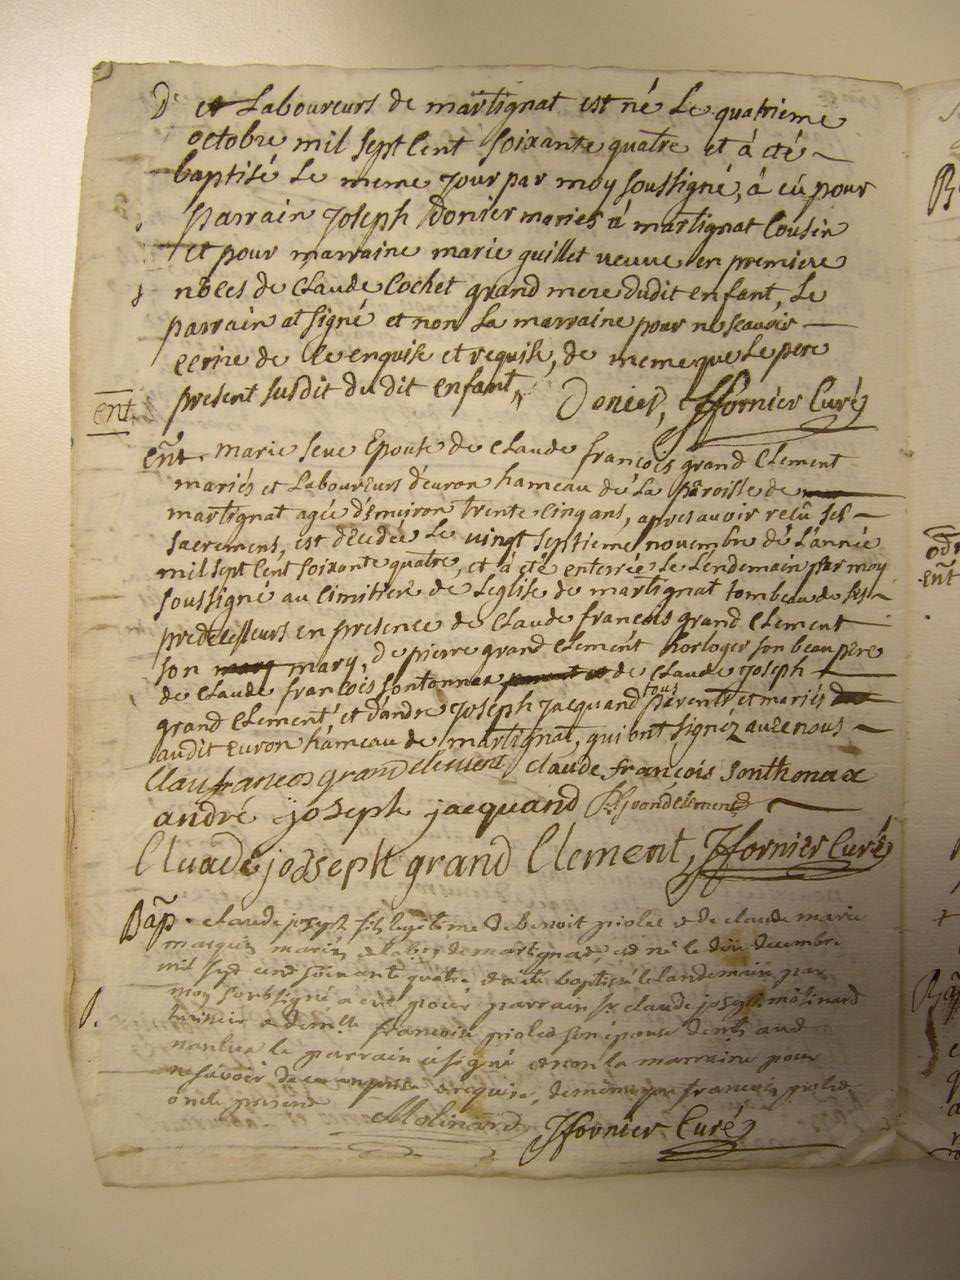 et Laboureurs de martignat est né Le quatrieme
octobre mil sept Cent soixante quatre et à été
baptisé Le meme jour par moy soussigné, à eu pour
parrain joseph donier mariés à martignat Cousin
et pour marraine marie guillet veuve en premiere
nôces de Claude Cochet grand mere dudit enfant, Le
parrain at signé et non La marraine pour ne scavoir
ecrire de Ce enquise et requise, de meme que Le pere
present susdit du dit enfant,
Donier, Jfornier Curé
ent.
ent. marie seve Epouse de Claude françois grand Clement
mariés et Laboureurs d'euron hameau de La paroisse de
martignat agée d'emviron trente-Cinq ans, apres avoir reçû ses
sacremens, est decedée Le vingt septieme novembre de L'année
mil sept Cent soixante quatre, et à été enterrée Le Lendemain par moy
soussigné au Cimitiere de L'eglise de martignat tombeau de ses
predecesseurs en presence de Claude francois grand Clement
son mary, de pierre grand Clement horloger son beau pere
de Claude françois sontonnax de Claude joseph
grand Clement, et d'andre joseph jacquand tous parents et mariés
audit Euron hameau de martignat, qui ont signéz avec nous
Clau françois grand clement claude françois Sonthonax
andré joseph jacquand P grandclement
Cluade joseph grand Clement, Jfornier Curé
Bap. Claude joseph fils legitime de benoit piolet et de claude marie
mariés et lab. de martignat, est né le dix decembre
mil sept cent soixante quatre et a été baptisé le landemain par
moy soubsigné a eut pour parrain sr. claude joseph molinard
francoise piolet son epouse
nantua le parrain a signé et non la marraine pour
ne scavoir de ce enquise et requise, de meme que francois piolet
oncle present
Molinard Jfornier Curé